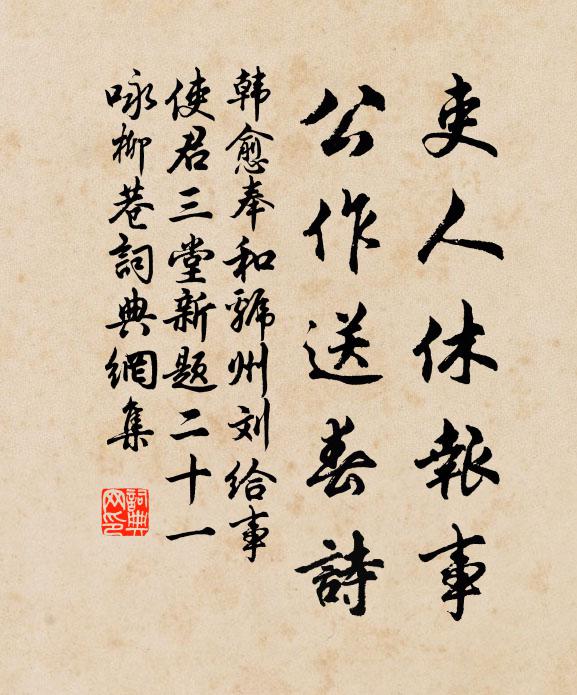 吏人休報事
公作送春詩
韩愈奉和虢州刘给事
使君三堂新题二十一
咏柳巷詞典網集
詞典网印